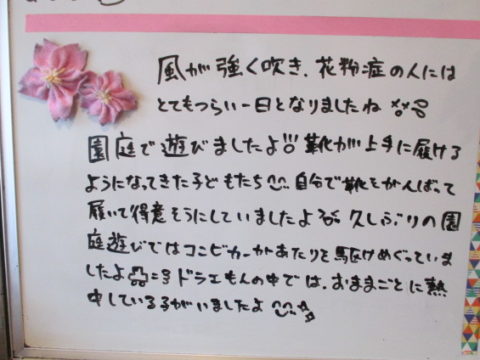 風が強く吹き、花粉症の人には
とてもつらい一日となりましたね
園庭で遊びましたよ!!靴が上手に履ける
ようになってきた子どもたち 自分で靴をがんばって
履いて得意そうにしていましたよ 久しぶりの園
庭遊びではコンビカーがあたりを駆けめぐっていま
したよ ドラえもんの中では、おままごとに熱
中している子がいましたよ